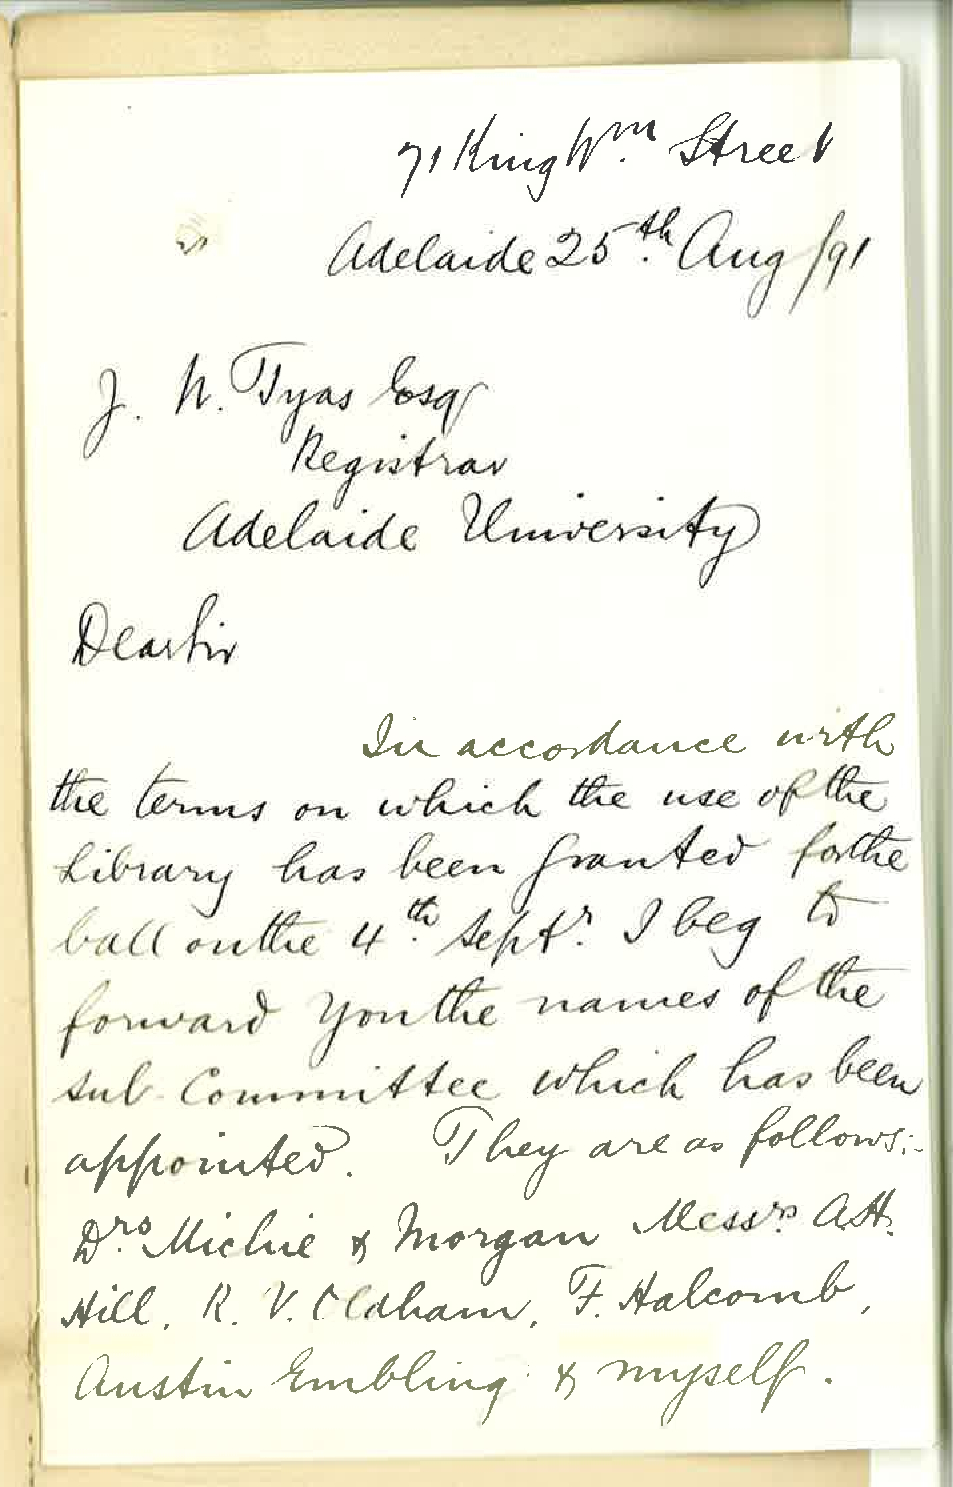 71 King Wm. Street
Adelaide 25th. Aug /91
J. W. Tyas Esq
Registrar
Adelaide University
Dear Sir
In accordance with
the terms on which the use of the
Library has been granted for the
ball on the 4th. Septr. I beg to
forward you the names of the
sub Committee which has been
appointed. They are as follows:-
Drs. Michie & Morgan Messrs. A. H.
Hill, R. V. Oldham, F. Halcomb,
Austin Embling & myself.